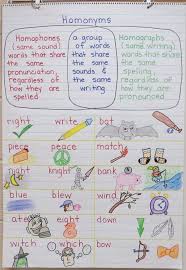 Homonyms
Homophones
(same sound)
words that share
the same
pronunciation,
regardless of
how they are
spelled
a group
of words
that share
the same
sounds &
the same
writing
Homographs
(same writing)
words that share
the same
spelling
regardless of
how they are
pronounced
right write bat
piece peace match
night knight bank
blue blew wind
ate eight down
witch which bow